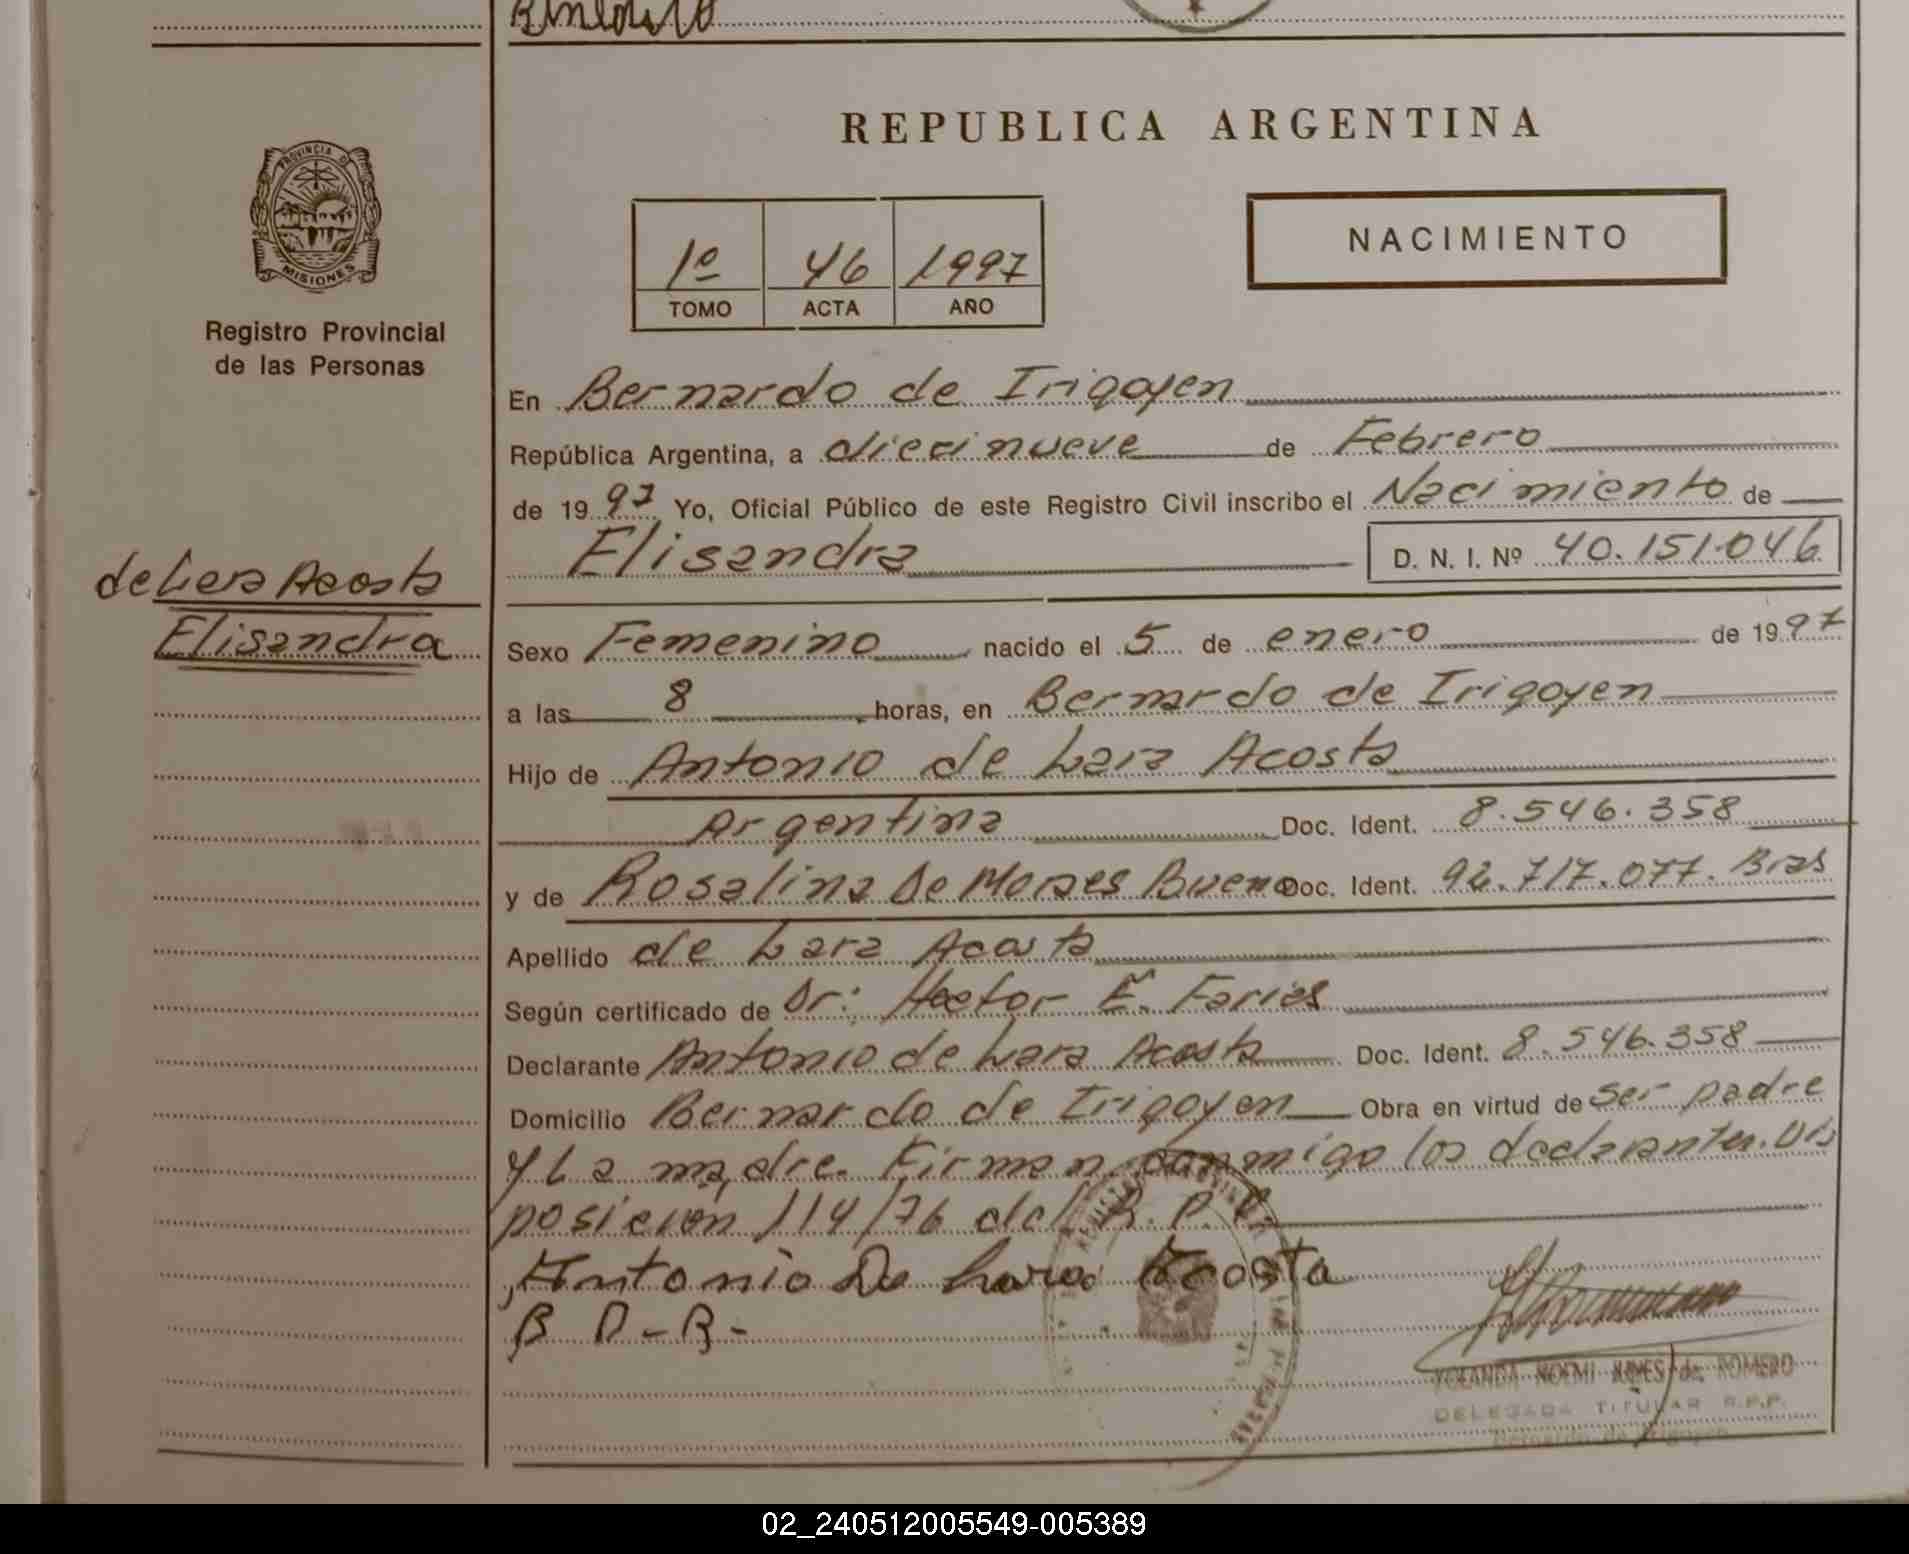 REPUBLICA ARGENTINA
PROVINCIA DE
MISIONES
Registro Provincial
de las Personas
1º 46 1997
TOMO ACTA AÑO
NACIMIENTO
de Lara Acosta
Elisandra
En Bernardo de Irigoyen
República Argentina, a diecinueve de Febrero
de 1997 Yo, Oficial Público de este Registro Civil inscribo el Nacimiento de
Elisandra D. N. I. Nº 40.151.046
Sexo Femenino nacido el 5 de enero de 1997
a las 8 horas, en Bernardo de Irigoyen
Hijo de Antonio de Lara Acosta
Argentina Doc. Ident. 8.546.358
y de Rosalina De Moraes Bueno Doc. Ident. 92.717.077. Bras
Apellido de Lara Acosta
Según certificado de Dr: Hector E. Farias
Declarante Antonio de Lara Acosta Doc. Ident. 8.546.358
Domicilio Bernardo de Irigoyen Obra en virtud de ser padre
y La madre. Firman conmigo los declarantes. Dis
posición 114/76 del R. P. P.
Antonio De Lara Acosta
R D-B-
YOLANDA NOEMI de ROMERO
DELEGADA TITULAR R.P.P.
Bernardo de Irigoyen
02_240512005549-005389